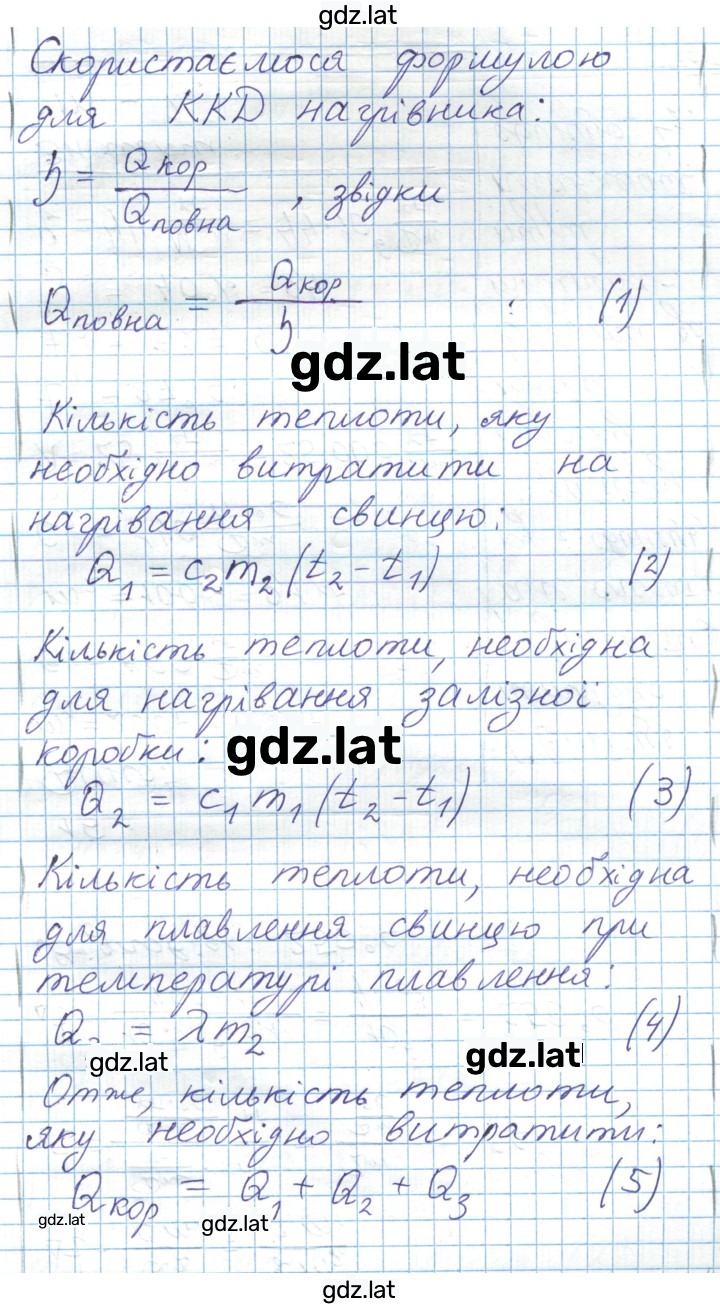 gdz.lat
Скористаємося формулою
для ККД нагрівника:
η = Qкор / Qповна , звідки
Qповна = Qкор / η . (1)
gdz.lat
Кількість теплоти, яку
необхідно витратити на
нагрівання свинцю:
Q₁ = c₂m₂(t₂ - t₁) (2)
Кількість теплоти, необхідна
для нагрівання залізної
коробки:
gdz.lat
Q₂ = c₁m₁(t₂ - t₁) (3)
Кількість теплоти, необхідна
для плавлення свинцю при
температурі плавлення:
Q = λm₂ (4)
gdz.lat gdz.lat
Отже, кількість теплоти,
яку необхідно витратити:
Qкор = Q₁ + Q₂ + Q₃ (5)
gdz.lat gdz.lat
gdz.lat